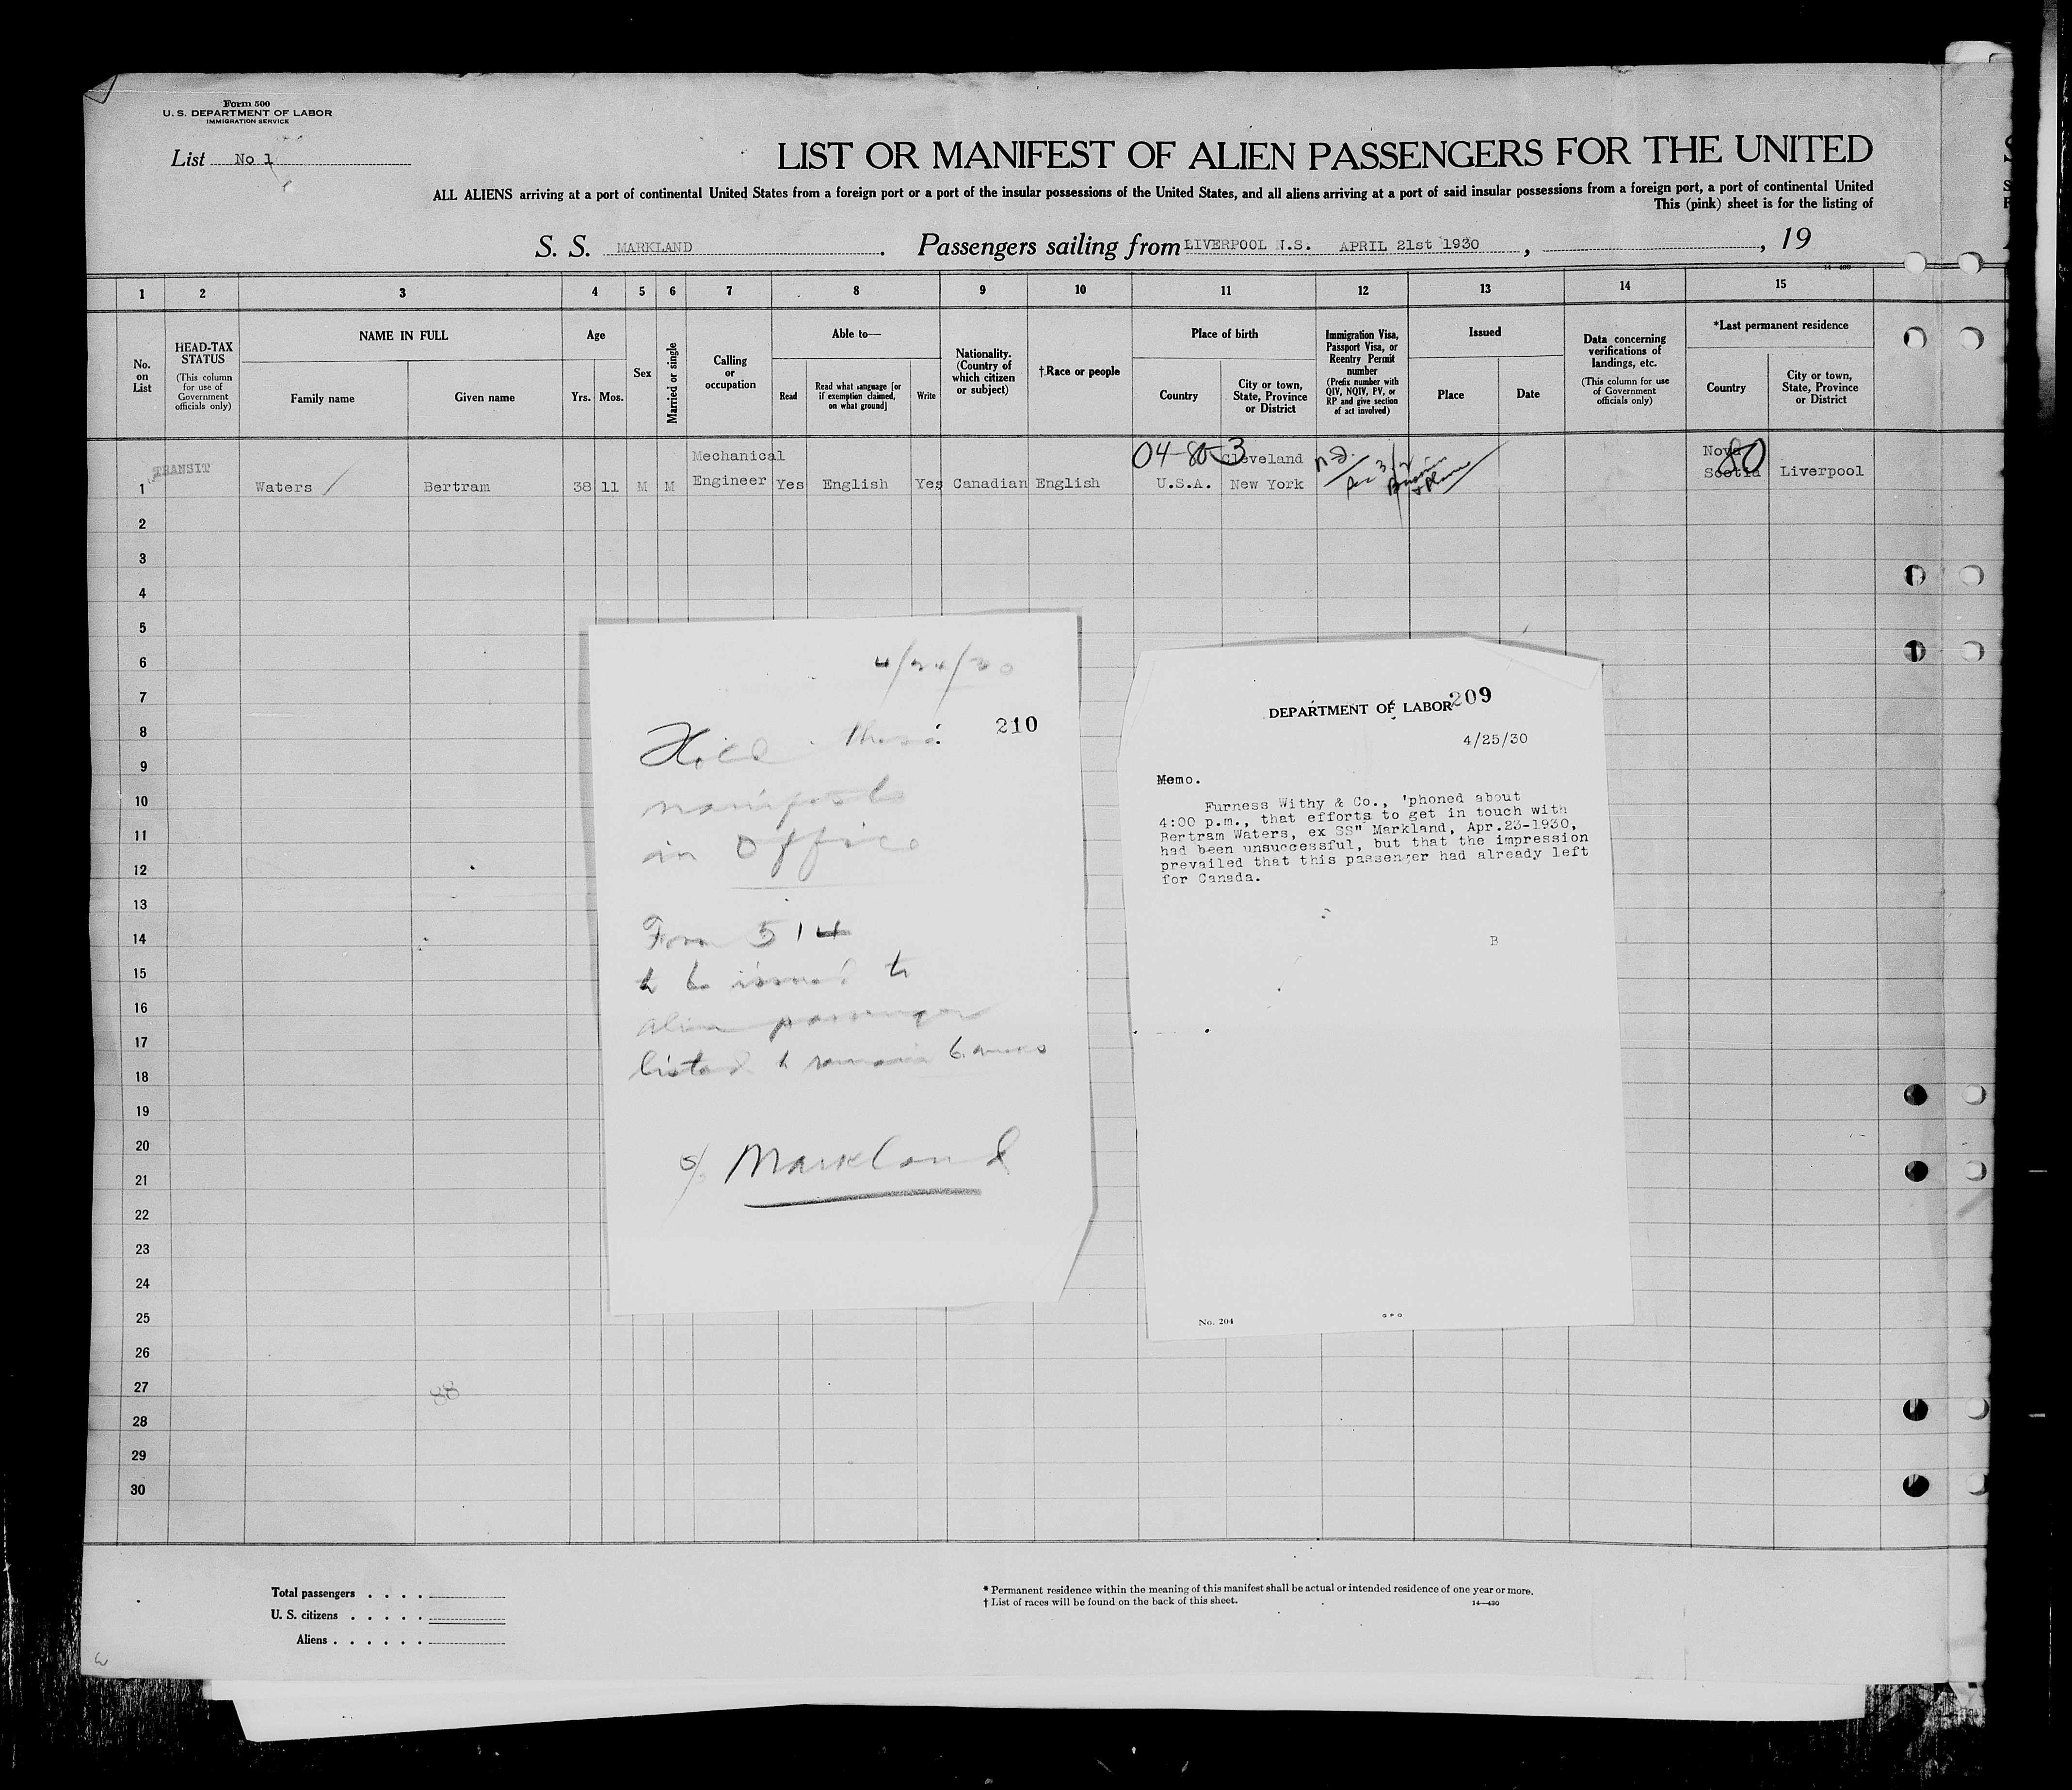 Form 500
U. S. DEPARTMENT OF LABOR
IMMIGRATION SERVICE
List No 1
LIST OR MANIFEST OF ALIEN PASSENGERS FOR THE UNITED
ALL ALIENS arriving at a port of continental United States from a foreign port or a port of the insular possessions of the United States, and all aliens arriving at a port of said insular possessions from a foreign port, a port of continental United
This (pink) sheet is for the listing of
S. S. MARKLAND. Passengers sailing from LIVERPOOL N.S. APRIL 21st 1930, , 19
14—430
1 2 3 4 5 6 7 8 9 10 11 12 13 14 15
No. on List
HEAD-TAX STATUS
(This column for use of Government officials only)
NAME IN FULL
Family name
Given name
Age
Yrs. Mos.
Sex
Married or single
Calling or occupation
Able to—
Read
Read what language [or if exemption claimed, on what ground]
Write
Nationality. (Country of which citizen or subject)
†Race or people
Place of birth
Country
City or town, State, Province or District
Immigration Visa, Passport Visa, or Reentry Permit number
(Prefix number with QIV, NQIV, PV, or RP and give section of act involved)
Issued
Place
Date
Data concerning verifications of landings, etc.
(This column for use of Government officials only)
*Last permanent residence
Country
City or town, State, Province or District
TRANSIT
04-80-3
80
1 Waters Bertram 38 11 M M Mechanical Engineer Yes English Yes Canadian English U.S.A. Cleveland New York Nova Scotia Liverpool
2
3
4
5
6
7
8
9
10
11
12
13
14
15
16
17
18
19
20
21
22
23
24
25
26
27
28
29
30
88
4/24/30
210
Hold these
manifests
in Office
Form 514
to be issued to
alien passenger
listed to remain 6 mos
S/S Markland
DEPARTMENT OF LABOR 209
4/25/30
Memo.
Furness Withy & Co., 'phoned about
4:00 p.m., that efforts to get in touch with
Bertram Waters, ex SS" Markland, Apr.23-1930,
had been unsuccessful, but that the impression
prevailed that this passenger had already left
for Canada.
B
No. 204
GPO
Total passengers . . . .
U. S. citizens . . . . .
Aliens . . . . . .
* Permanent residence within the meaning of this manifest shall be actual or intended residence of one year or more.
† List of races will be found on the back of this sheet.
14—430